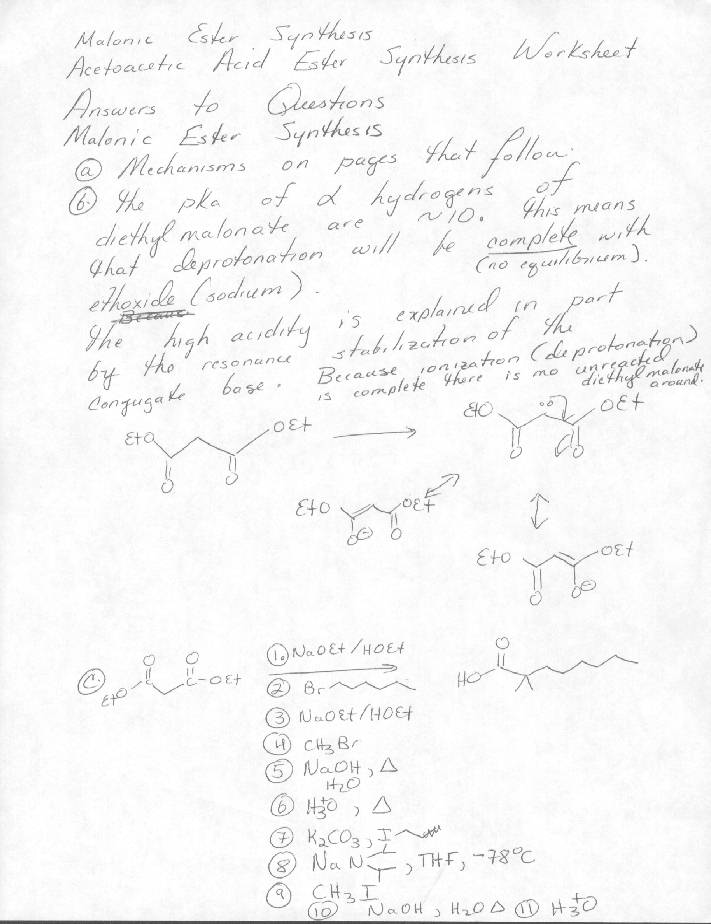 Malonic Ester Synthesis
Acetoacetic Acid Ester Synthesis Worksheet
Answers to Questions
Malonic Ester Synthesis
ⓐ Mechanisms on pages that follow.
ⓑ The pka of α hydrogens of
diethyl malonate are ~10. This means
that deprotonation will be complete with
ethoxide (sodium). (no equilibrium).
Because
The high acidity is explained in part
by the resonance stabilization of the
conjugate base. Because ionization (deprotonation)
is complete there is no unreacted
diethyl malonate
around.
EtO OEt EtO OEt
O O O O
EtO OEt
O⊖ O
EtO OEt
O O⊖
ⓒ EtO O O C-OEt
① NaOEt/HOEt
② Br
③ NaOEt/HOEt
④ CH3Br
⑤ NaOH, Δ
H2O
⑥ H3O+, Δ
⑦ K2CO3, I
⑧ Na N , THF, -78°C
⑨ CH3I
⑩ NaOH, H2O Δ ⑪ H3O+
O
HO